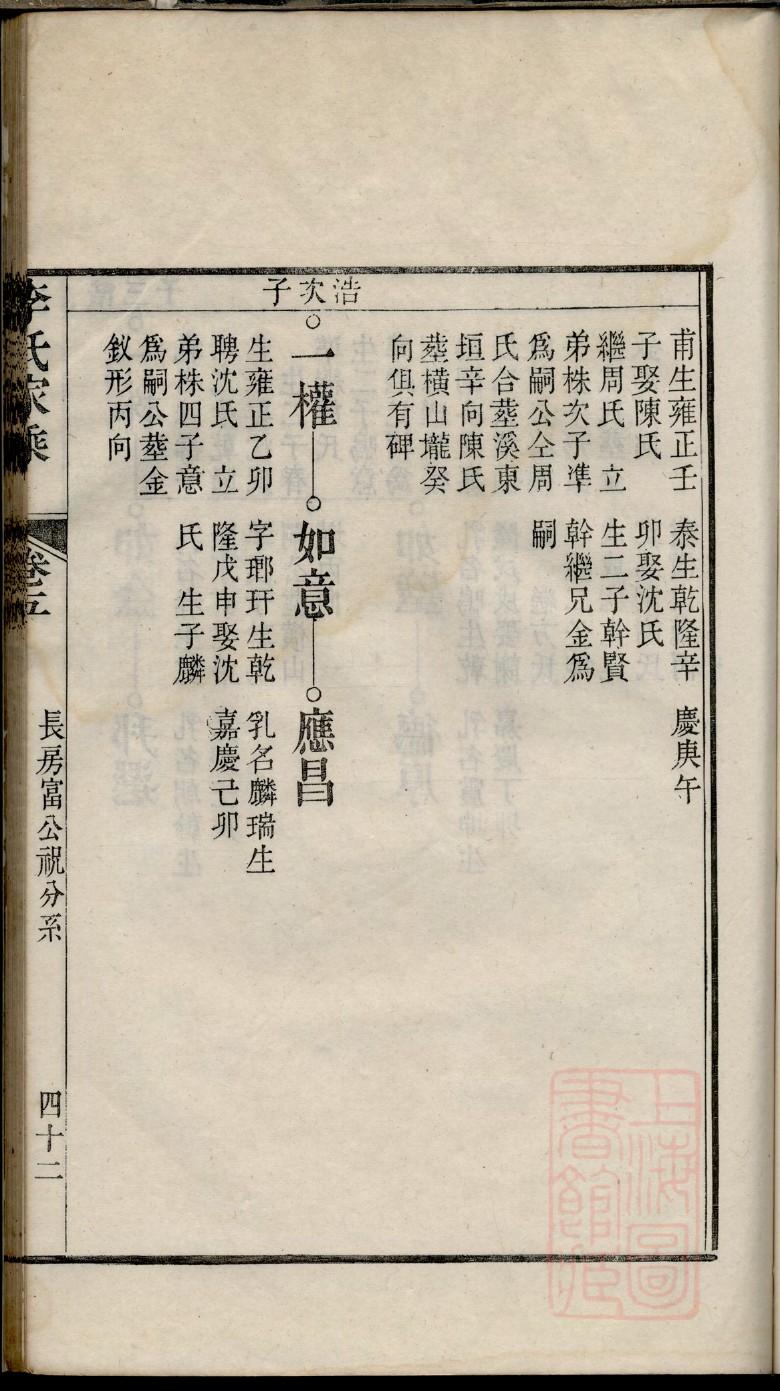 甫生雍正壬
子娶陳氏
繼周氏　立
弟株次子凖
爲嗣公仝周
氏合塟溪東
垣辛向陳氏
塟橫山壠癸
向俱有碑
泰生乾隆辛
卯娶沈氏
生二子幹賢
幹繼兄金爲
嗣
慶庚午
浩次子
一權
生雍正乙卯
聘沈氏　立
弟株四子意
爲嗣公塟金
釵形丙向
如意
字琊玕生乾
隆戊申娶沈
氏　生子麟
應昌
乳名麟瑞生
嘉慶己卯
李氏家乘
卷五
長房富公祝分系
四十二
上海圖
書館藏